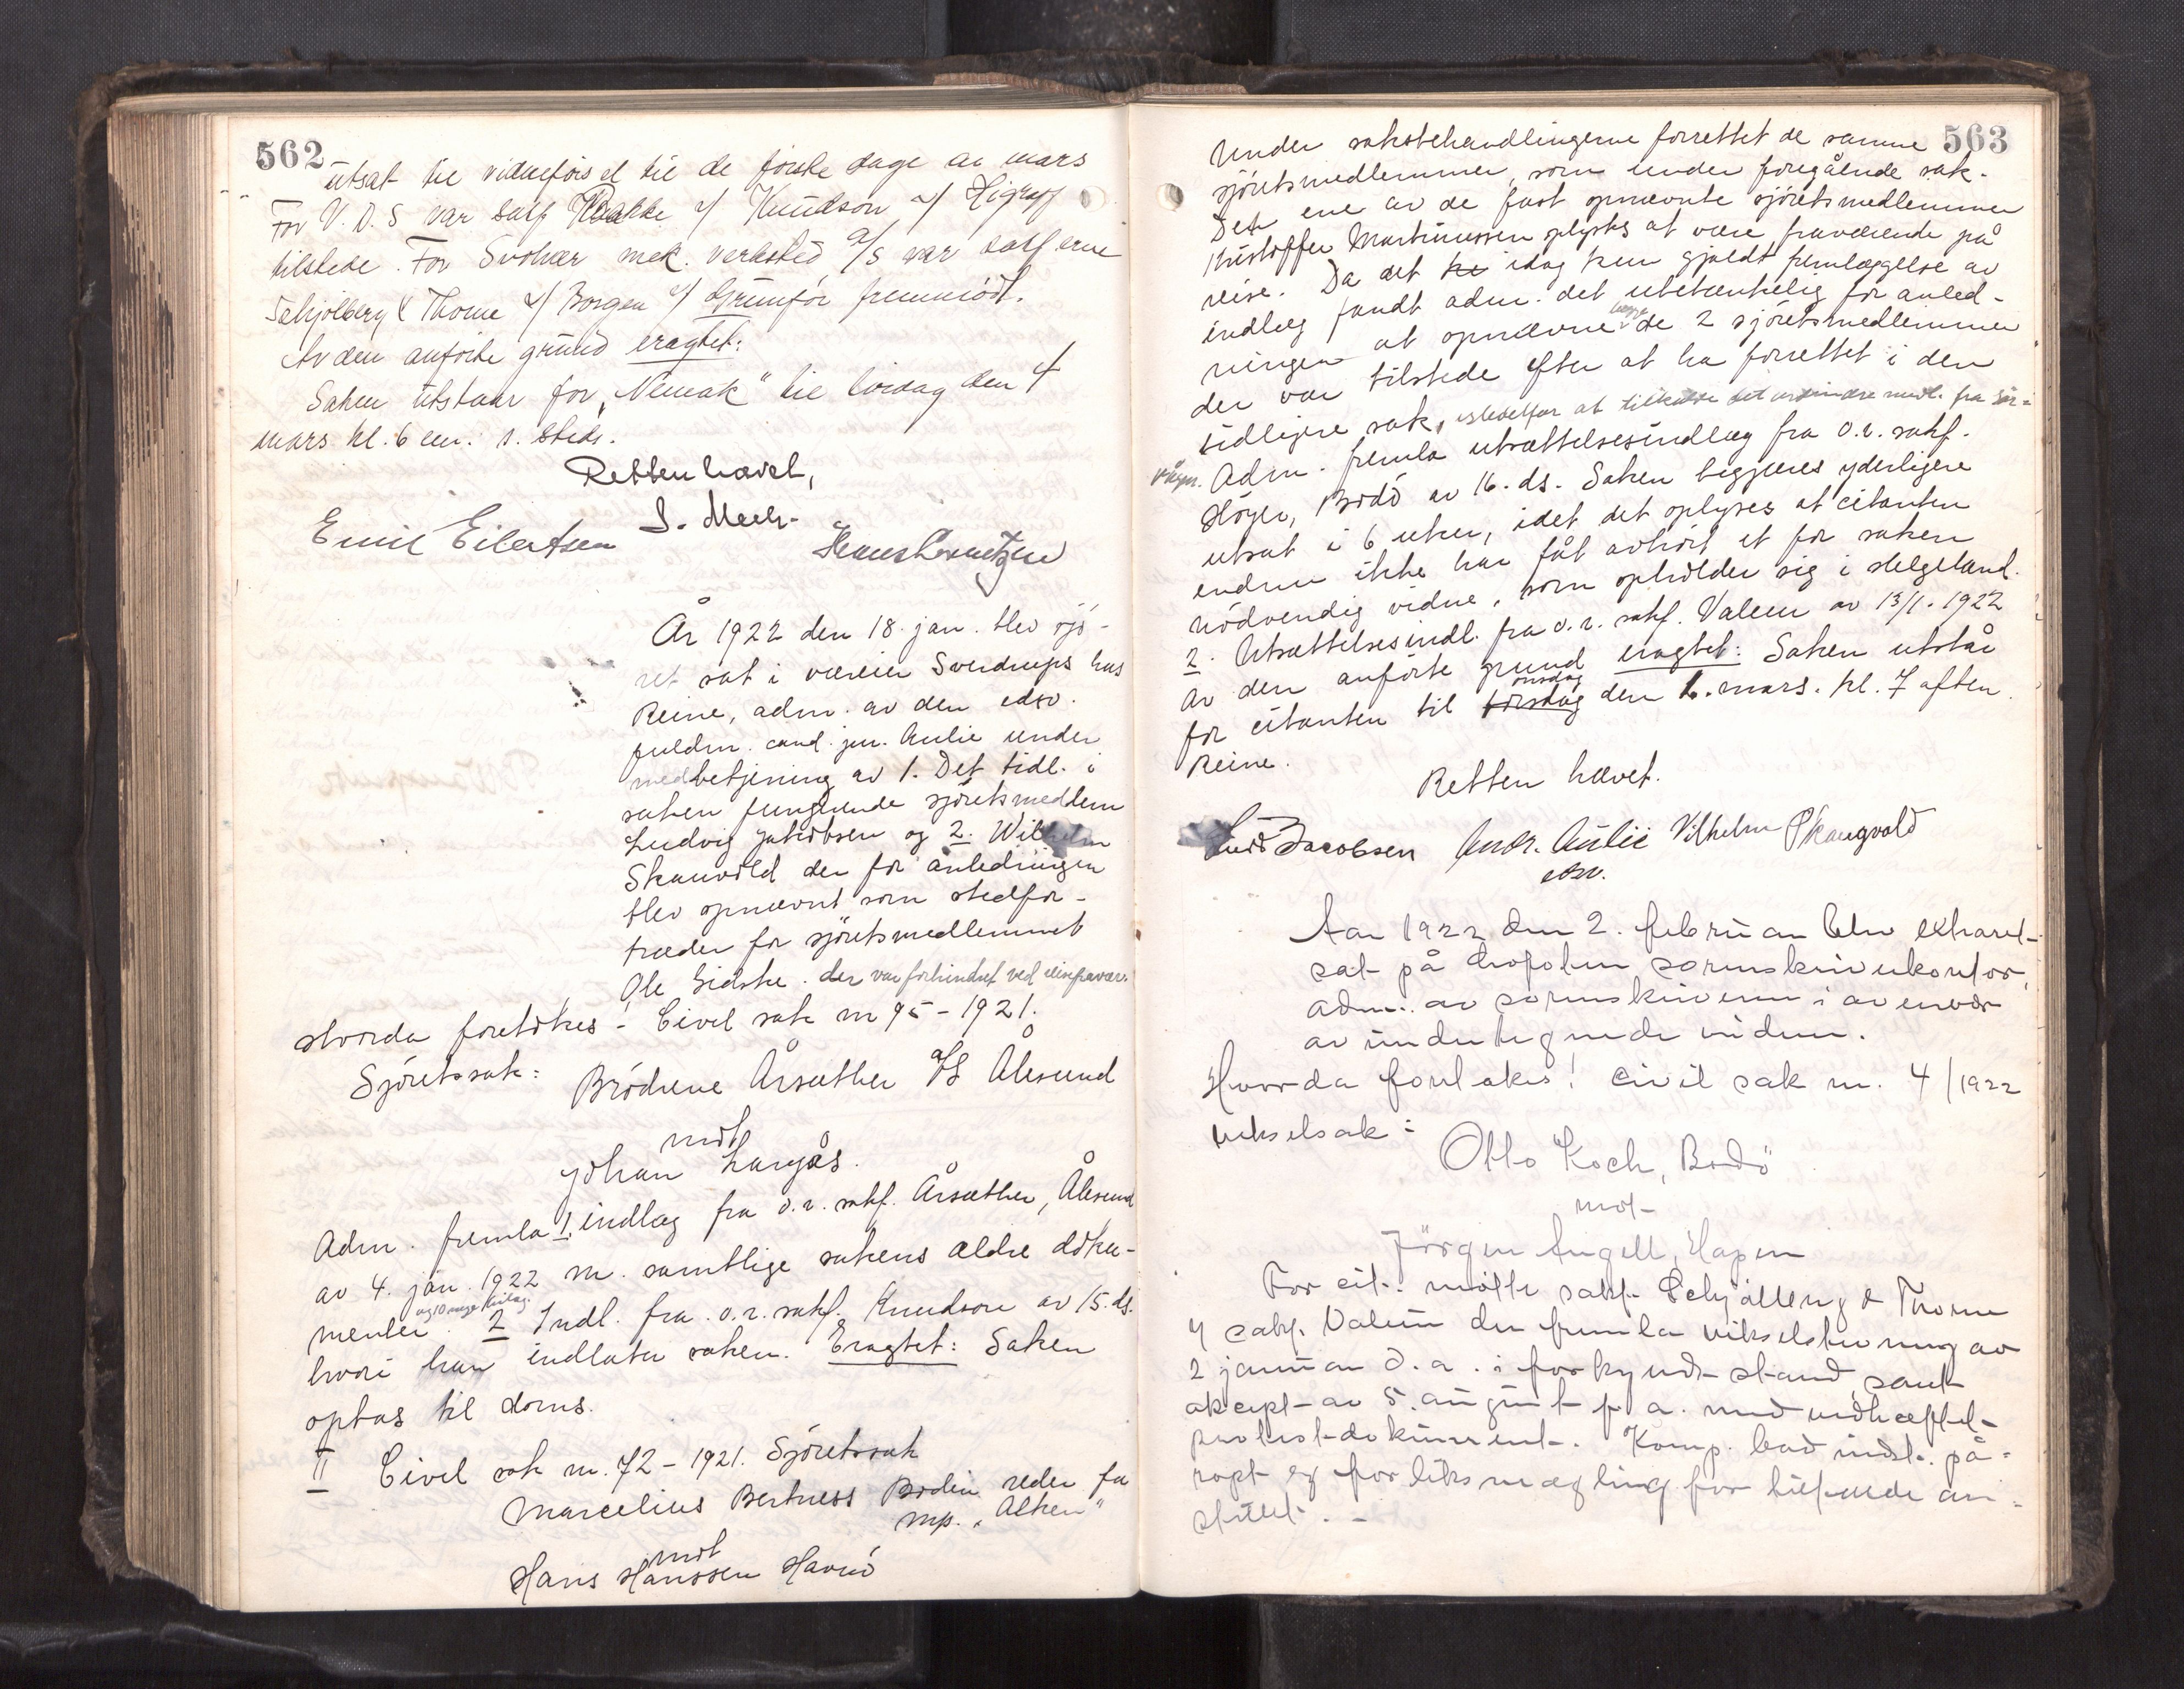 562
utsat til vidneførsel til de første dage av mars
For V. D. S var sakf Kbakke v/ Knudson v/
tilstede. For Svolvær mek. verksted A/S var sakf erne
Schjölberg & Thome v/ Borgen v/ Grimsför fremmödt.
Av den anförte grund eragtet:
Saken utstaar for "Nemak" til lördag den 4
mars kl. 6 em. s. steds.
Retten hævet,
Emil Eilertsen
År 1922 den 18. jan. blev sjö-
ret sat i væreier Sverdrups hus
Reine, adm. av den edsv.
fuldm. cand. jur. Aulie under
medbetjening av 1. Det tidl. i
saken fungerende sjöretsmedlem
Ludvig Jakobsen og 2. Wilhelm
Skauvold der for anledningen
blev opnævnt som stedfor-
træder for sjöretsmedlemmet
Ole Gidske. der var forhindret ved
Hvorda foretokes - Civil sak nr 95 - 1921.
Sjöretssak: Brödrene Årsæther A/S Ålesund
mot
Johan Langås.
Adm. fremla 1. indlæg fra o.r. sakf. Årsæther, Ålesund
av 4. jan. 1922 m. samtlige sakens ældre doku-
og 10 nye bilag.
menter. 2 Indl. fra o.r. sakf. Knudson av 15. ds.
hvori han indlater saken. Eragtet: Saken
optas til doms.
II Civil sak nr. 72 - 1921. Sjöretssak
Marcelius Bertness Bodin reder for
mp. "Alken"
mot
Hans Hanssen Havnö
563
Under saksbehandlingerne forrettet de samme
sjöretsmedlemmer, som under foregående sak.
Det ene av de fast opnævnte sjöretsmedlemmer
Kristoffer Martinussen oplystes at være fraværende på
reise. Da det idag kun gjaldt fremlæggelse av
indlæg fandt adm. det ubetænkelig for anled-
ningen at opnævne begge de 2 sjöretsmedlemmer
der var tilstede efter at ha forrettet i den
tidligere sak, istedetfor at tilkalde det ordinære medl. fra Sör=
vågen. Adm. fremla utsættelsesindlæg fra o.r. sakf.
Höyer, Bodö av 16. ds. Saken begjæres yderligere
utsat i 6 uker, idet det oplyses at citanten
endnu ikke har fåt avhört et for saken
nödvendig vidne, som opholder sig i Helgeland.
2. Utsættelsesindl. fra o.r. sakf. Valeur av 13/1. 1922
Av den anförte grund eragtet: Saken utstår
onsdag
for citanten til torsdag den 1. mars. kl. 7 aften
Reine.
Retten hævet.
Ludv Jacobsen Andr. Aulie Vilhelm Skaugvold
edsv.
Aar 1922 den 2. februar blev extraret-
sat på Lofoten sorenskriverkontor,
adm. av sorenskriveren i nærvær
av undertegnede vidner.
Hvorda foretokes! Civil sak nr. 4/1922
vekselsak:
Otto Koch, Bodö
mot
Jörgen Angell, Hopen
For cit. mötte sakf. Schjölberg & Thome
v/ sakf. Valeur der fremla vekselstevning av
2 januar d. a. i forkyndt stand, samt
aksept av 5. august f. a. med vedhæftet
protest-dokument. Komp. bad indst. på-
ropt og forliksmægling for tilfælde an-
stillet. -